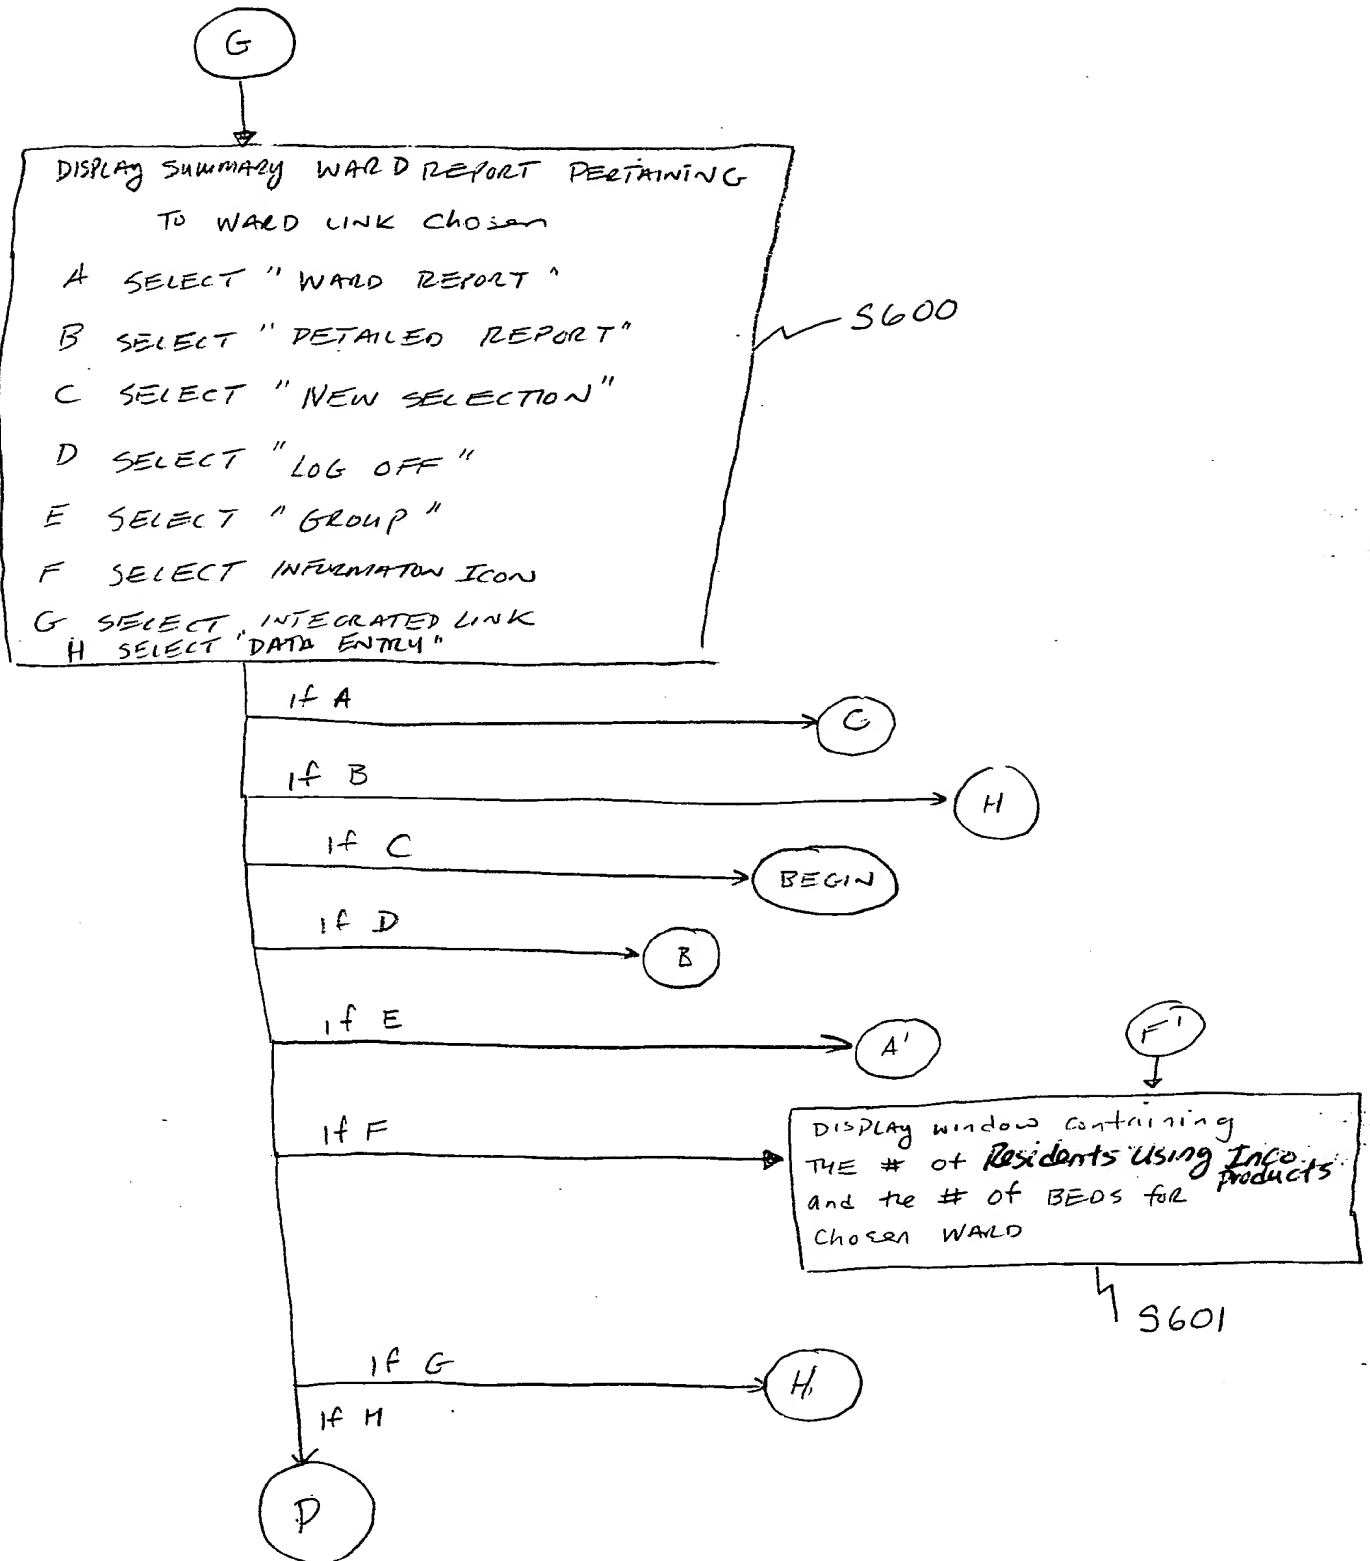 G
DISPLAY SUMMARY WARD REPORT PERTAINING
TO WARD LINK Chosen
A SELECT "WARD REPORT"
B SELECT "DETAILED REPORT"
C SELECT "NEW SELECTION"
D SELECT "LOG OFF"
E SELECT "GROUP"
F SELECT INFORMATON ICON
G SELECT INTEGRATED LINK
H SELECT "DATA ENTRY"
S600
If A
C
If B
H
If C
BEGIN
If D
B
If E
A'
F'
If F
DISPLAY window containing
THE # of Residents Using Inco
products
and the # of BEDS for
Chosen WARD
S601
If G
H
If H
D